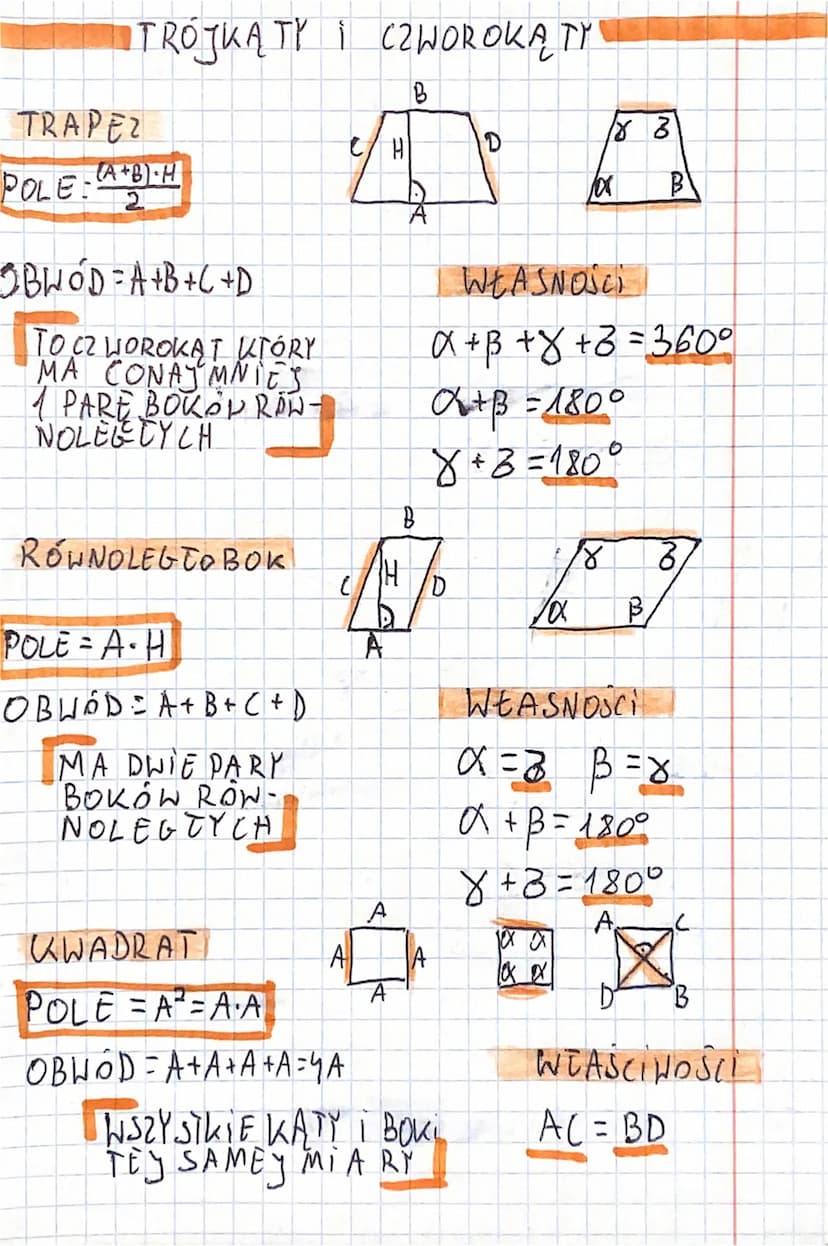 TRÓJKĄTY i CZWOROKĄTY
TRAPEZ
POLE = (A+B)·H / 2
B
C H D
A
γ 3
α β
OBWÓD = A+B+C+D
WŁASNOŚCi
TO CZWOROKĄT KTÓRY
MA CONAJMNIEJ
1 PARĘ BOKÓW RÓW-
NOLEGŁYCH
α + β + γ + 3 = 360°
α + β = 180°
γ + 3 = 180°
RÓWNOLEGŁOBOK
B
C H D
A
γ 3
α β
POLE = A·H
OBWÓD = A + B + C + D
WŁASNOŚCi
MA DWIE PARY
BOKÓW RÓW-
NOLEGŁYCH
α = 3 β = γ
α + β = 180°
γ + 3 = 180°
KWADRAT
A
A A
A
α α
α α
A C
D B
POLE = A² = A·A
OBWÓD = A+A+A+A=4A
WŁAŚCiWOŚCi
WSZYSTKiE KĄTY i BOKi
TEJ SAMEJ MiARY
AC = BD